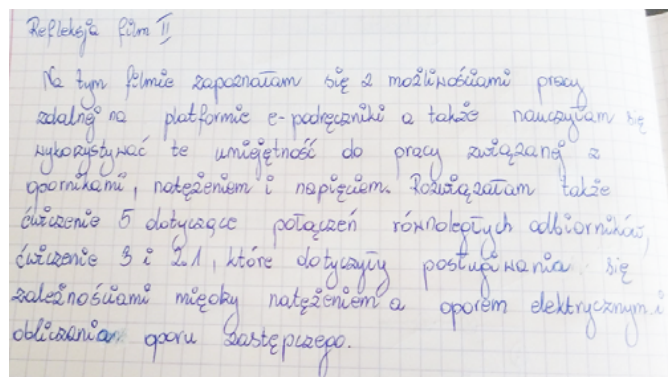 Refleksja film II
Na tym filmie zapoznałam się z możliwościami pracy
zdalnej na platformie e-podręczniki a także nauczyłam się
wykorzystywać te umiejętność do pracy związanej z
opornikami, natężeniem i napięciem. Rozwiązałam także
ćwiczenie 5 dotyczące połączeń równoległych odbiorników,
ćwiczenie 3 i 2.1, które dotyczyły posługiwania się
zależnościami między natężeniem a oporem elektrycznym i
obliczania oporu zastępczego.